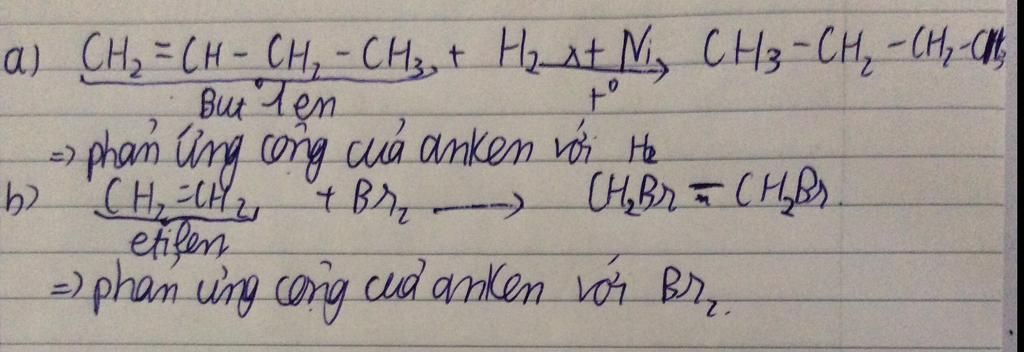 a) CH₂ = CH - CH₂ - CH₃ + H₂ xt Ni → CH₃ - CH₂ - CH₂ - CH₃
But 1 en t°
=> phản ứng cộng của anken với H₂
b) CH₂ = CH₂ + Br₂ → CH₂Br = CH₂Br
etilen
=> phản ứng cộng của anken với Br₂.